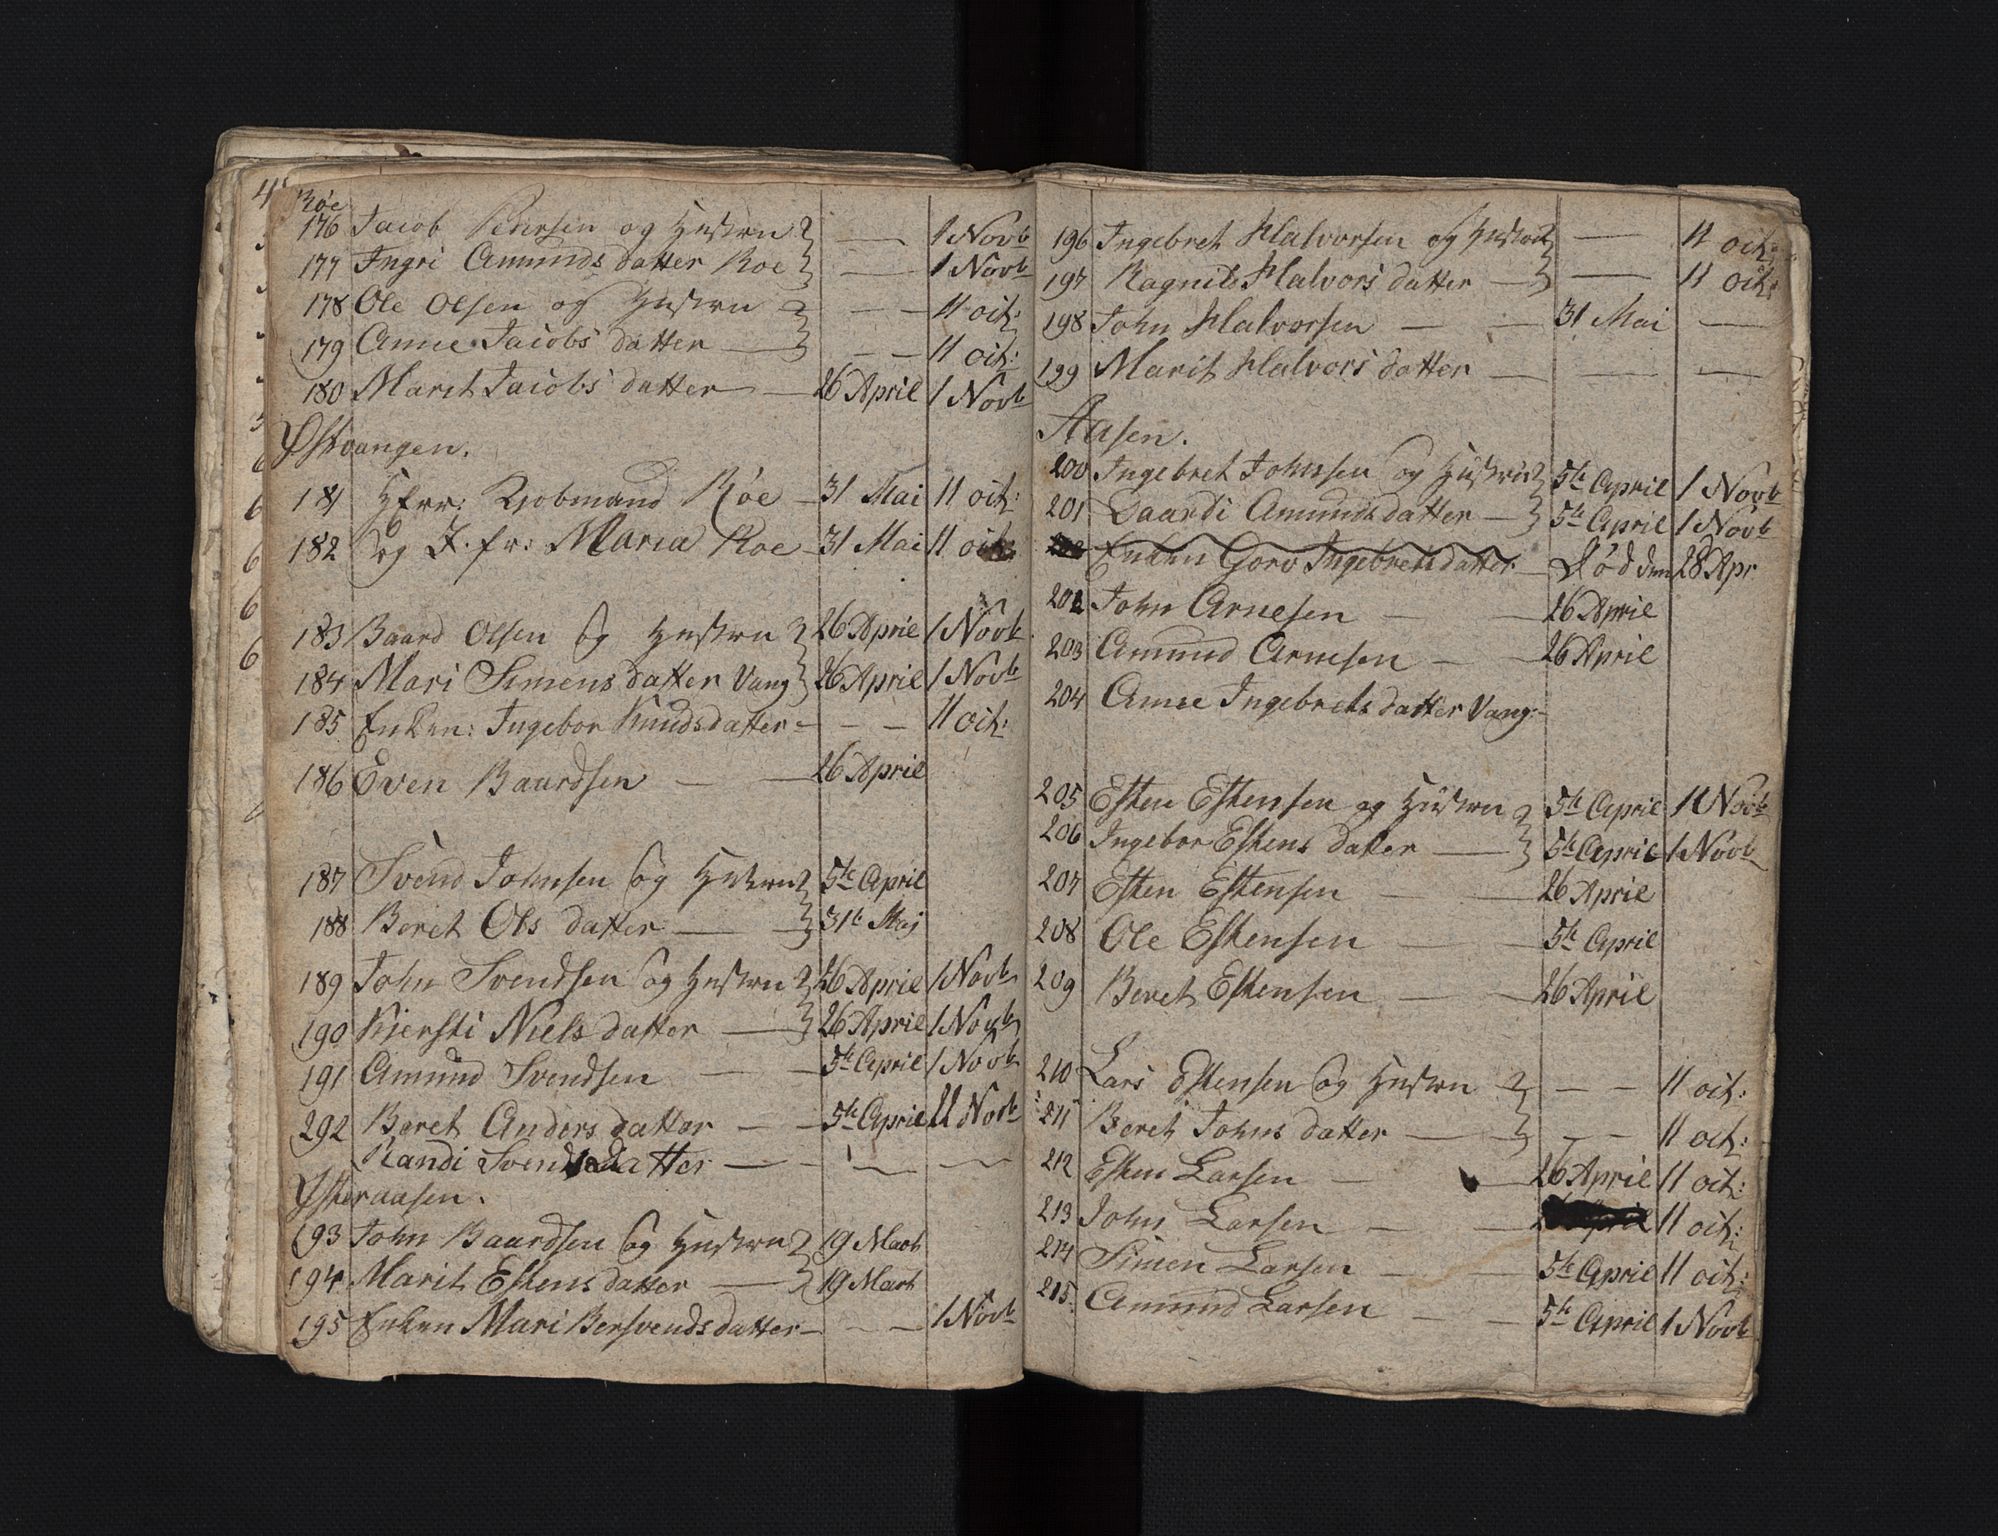 Röe
176 Jacob Pedersen og Hustru — 1 Novb
177 Ingri Amunds datter Roe — 1 Novb
178 Ole Olsen og Hustru — — 11 oct:
179 Anne Jacobs datter — — — 11 oct:
180 Marit Jacobs datter — 26 April 1 Novb
Østvangen.
181 Herr: Kjobmand Röe — 31 Mai 11 oct:
182 og J. fr: Maria Roe — 31 Mai 11 oct:
183 Baard Olsen og Hustru 26 April 1 Novb
184 Mari Simens datter Vang 26 April 1 Novb
185 Enken: Ingebor Knudsdatter — — — 11 oct:
186 Even Baardsen — — 26 April
187 Svend Johnsen og Hustru 5te April
188 Beret Ols datter — — 31te Maj
189 John Svendsen og Hustru 26 April 1 Novb
190 Kjersti Niels datter — 26 April 1 Novb
191 Amund Svendsen — — 5te April 1 Novb
292 Beret Anders datter — — 5te April 11 Novb
Randi Svends datter — — — — —
Østeraasen.
193 John Baardsen og Hustru 19 Marts
194 Marit Estens datter — 19 Marts
195 Enken Mari Bersvends datter — — — 1 Novb
196 Ingebret Halvorsen og Hustru — 11 oct:
197 Ragnil Halvors datter — — 11 oct:
198 John Halvorsen — — 31 Mai —
199 Marit Halvors datter — — — —
Aasen.
200 Ingebret Johnsen og Hustru 5te April 1 Novb
201 Baardi Amunds datter — 5te April 1 Novb
Enken Goro Ingebrets datter — Död den 28 Apr
202 John Arnesen — 26 April
203 Amund Arnesen — — 26 April
204 Anne Ingebrets datter Vang: —
205 Esten Estensen og Hustru 5te April 1 Novb
206 Ingebor Estens datter — 5te April 1 Novb
207 Esten Estensen — — 26 April
208 Ole Estensen — — 5te April
209 Beret Estensen — — 26 April
210 Lars Estensen og Hustru — — 11 oct:
211 Beret Johns datter — — — — 11 oct:
212 Esten Larsen — — 26 April 11 oct:
213 John Larsen — — 11 oct:
214 Simen Larsen — — 5te April 11 oct:
215. Amund Larsen — — 5te April 1 Novb